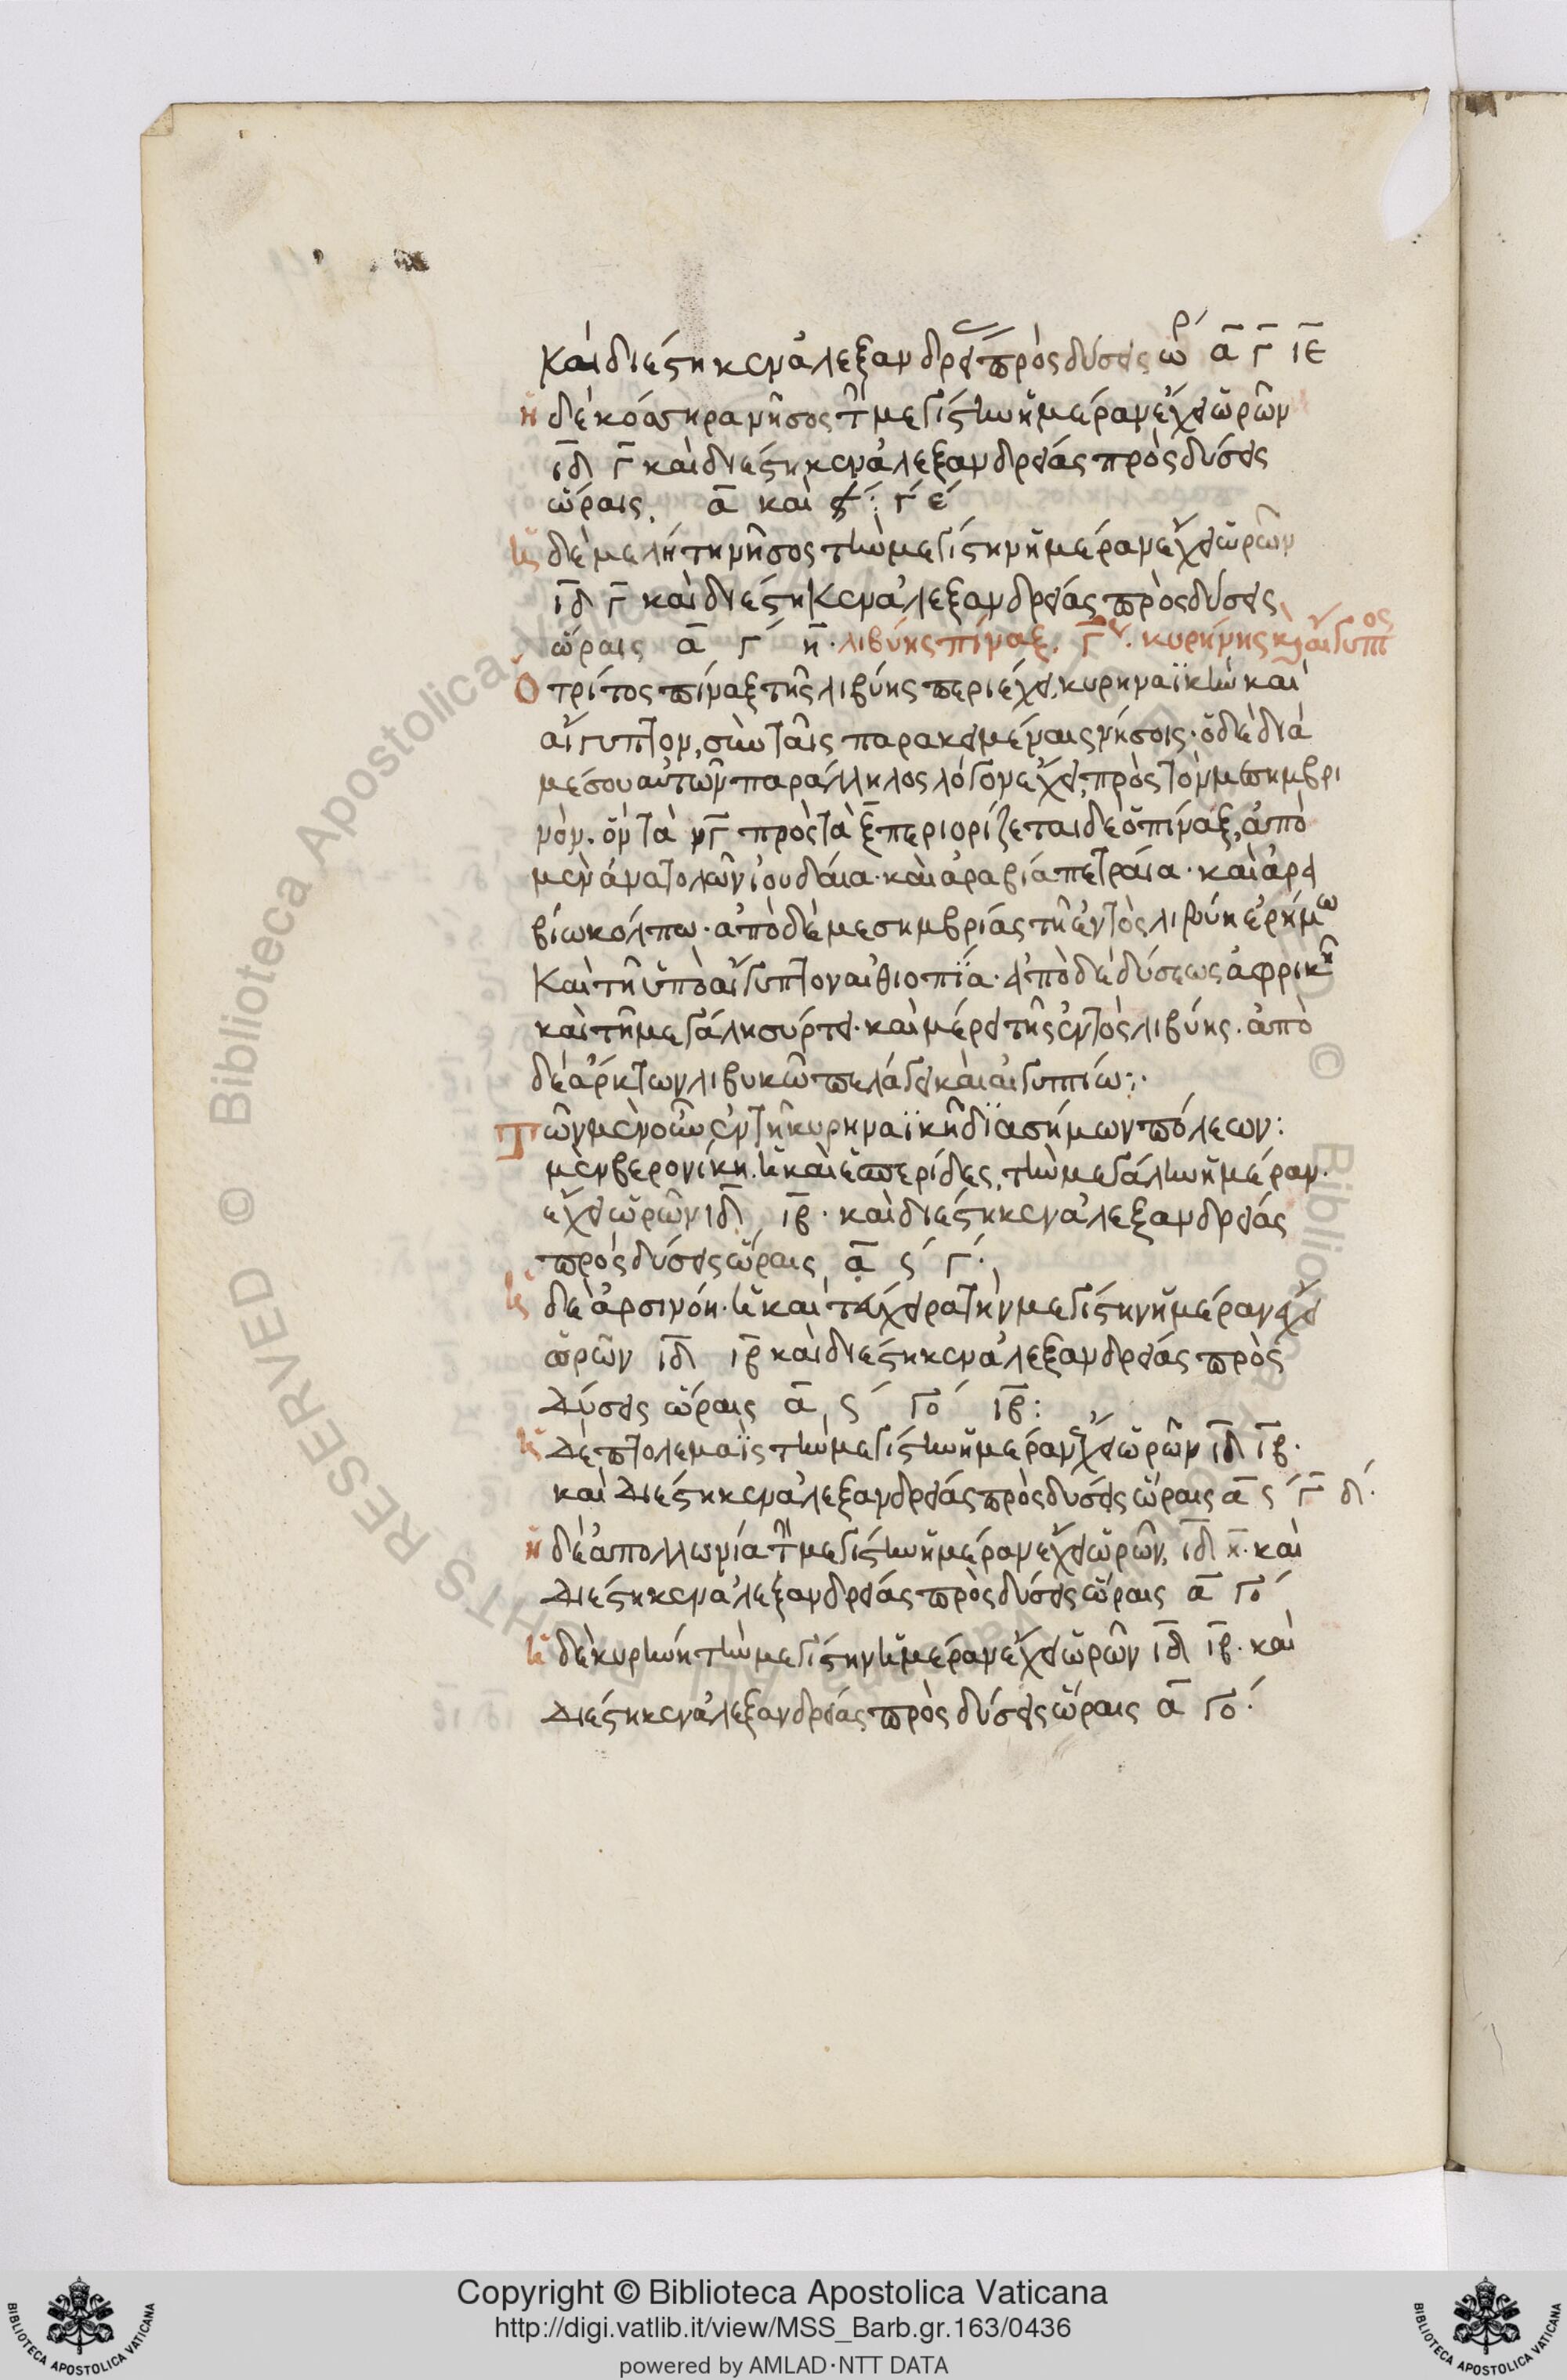 καὶ διέστηκεν ἀλεξανδρείας πρὸς δύσεις ὥρ ᾱ γ̄ ῑε̄
ἡ δὲ κόσσηρα νῆσος τὴν μεγίστην ἡμέραν ἔχει ὡρῶν
ῑδ̄ γ̄ καὶ διέστηκεν ἀλεξανδρείας πρὸς δύσεις
ὥραις, ᾱ καὶ γ´ ε´
ἡ δὲ μελήτη νῆσος τὴν μεγίστην ἡμέραν ἔχει ὡρῶν
ῑδ̄ γ̄ καὶ διέστηκεν ἀλεξανδρείας πρὸς δύσεις
ὥραις ᾱ γ´ η̄· λιβύης πίναξ. γ̄ος. κυρήνης κ(αὶ) αἴγυπτος
Ὁ τρίτος πίναξ τῆς λιβύης περιέχει, κυρηναϊκὴν καὶ
αἴγυπτον, σὺν ταῖς παρακειμέναις νήσοις· ὁ δὲ διὰ
μέσου αὐτῶν παράλληλος λόγον ἔχει, πρὸς τὸν μεσημβρι
νὸν. ὃν τὰ ν̄γ̄ πρὸς τὰ ξ̄ περιορίζεται δὲ ὁ πίναξ, ἀπὸ
μὲν ἀνατολῶν ἰουδαία· καὶ ἀραβία πετραία· καὶ ἀρα
βίω κόλπω· ἀπὸ δὲ μεσημβρίας τῆ ἐντὸς λιβύη ἐρήμω
καὶ τῆ ὑπὸ αἴγυπτον αἰθιοπΐα· ἀπὸ δὲ δύσεως ἀφρικῆ
καὶ τῆ μεγάλη σύρτει· καὶ μέρει τῆς ἐντὸς λιβύης. ἀπὸ
δὲ ἄρκτων λιβυκῶ πελάγει καὶ αἰγυπτίω:·
Τῶν μὲν οὖν ἐν τῆ κυρηναϊκῆ διασήμων πόλεων:
μὲν βερονίκη. ἡ καὶ ἑσπερίδες, τὴν μεγάλην ἡμέραν.
ἔχει ὡρῶν ῑδ̄ ῑβ̄· καὶ διέστηκεν ἀλεξανδρείας
πρὸς δύσεις ὥραις ᾱ ϛ´ γ´·
ἡ δὲ ἀρσινόη· ἡ καὶ ταύχειρα τὴν μεγίστην ἡμέραν ἔχει
ὡρῶν ῑδ̄ ῑβ̄ καὶ διέστηκεν ἀλεξανδρείας πρὸς
δύσεις ὥραις ᾱ, ϛ´ γο´ ῑβ̄:
ἡ δὲ πτολεμαῒς τὴν μεγίστην ἡμέραν ἔχει ὡρῶν ῑδ̄ ῑβ̄·
καὶ διέστηκεν ἀλεξανδρείας πρὸς δυσεις ὥραις ᾱ ϛ´ γ̄ δ´·
ἡ δὲ ἀπολλωνία τὴν μεγίστην ἡμέραν ἔχει ὡρῶν, ῑδ̄ η̄· καὶ
διέστηκεν ἀλεξανδρείας πρὸς δύσεις ὥραις ᾱ γο´
ἡ δὲ κυρήνη τὴν μεγίστην ἡμέραν ἔχει ὡρῶν ῑδ̄ ῑβ̄· καὶ
διέστηκεν ἀλεξανδρείας πρὸς δύσεις ὥραις ᾱ γο´·
Copyright © Biblioteca Apostolica Vaticana
http://digi.vatlib.it/view/MSS_Barb.gr.163/0436
powered by AMLAD·NTT DATA